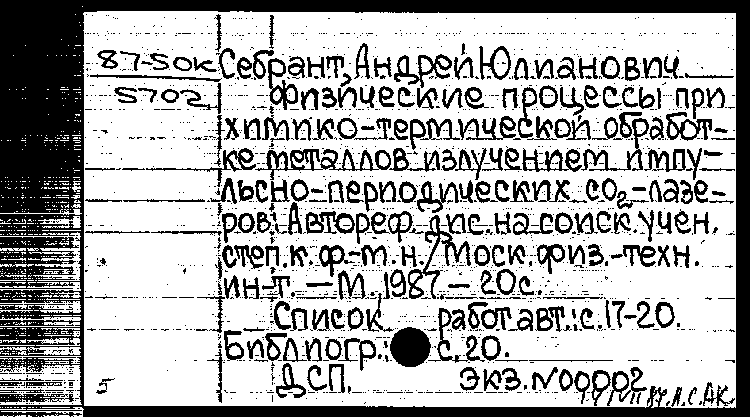 87-50К Себрант, Андрей Юлианович.
5702 Физические процессы при
химико-термической обработ-
ке металлов излучением импу-
льсно-периодических CO2-лазе-
ров: Автореф. дис. на соиск. учен.
степ. к. ф.-м. н. / Моск. физ.-техн.
ин-т. — М., 1987. — 20 с.
Список работ авт.: с. 17-20.
Библиогр.: с. 20.
5 ДСП. ЭКЗ. N00002